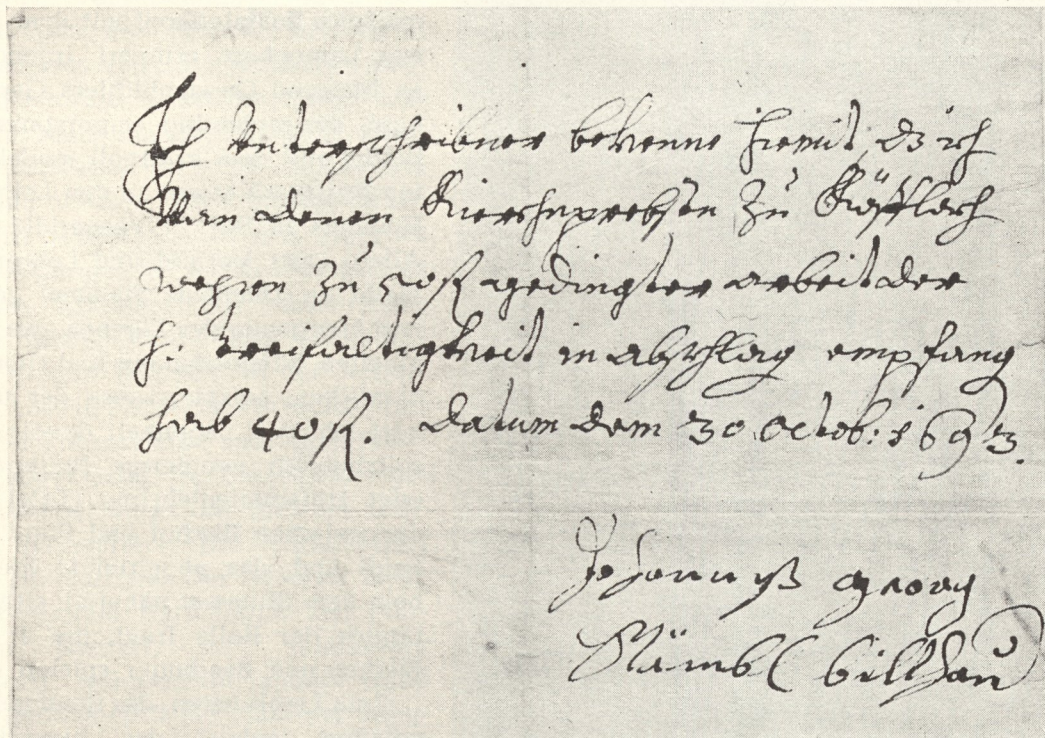 Ich Unterschribner bekenne hiemit, dz ich
Von denen Kierchnprebsten Zu Köfflach
wegen Zu 50 fl gedingter arbeit der
h: Treifaltigkeit in abschlag empfang
hab 40 fl. datum dem 30 Octob: 1693.
Johanneß Georg
billhau